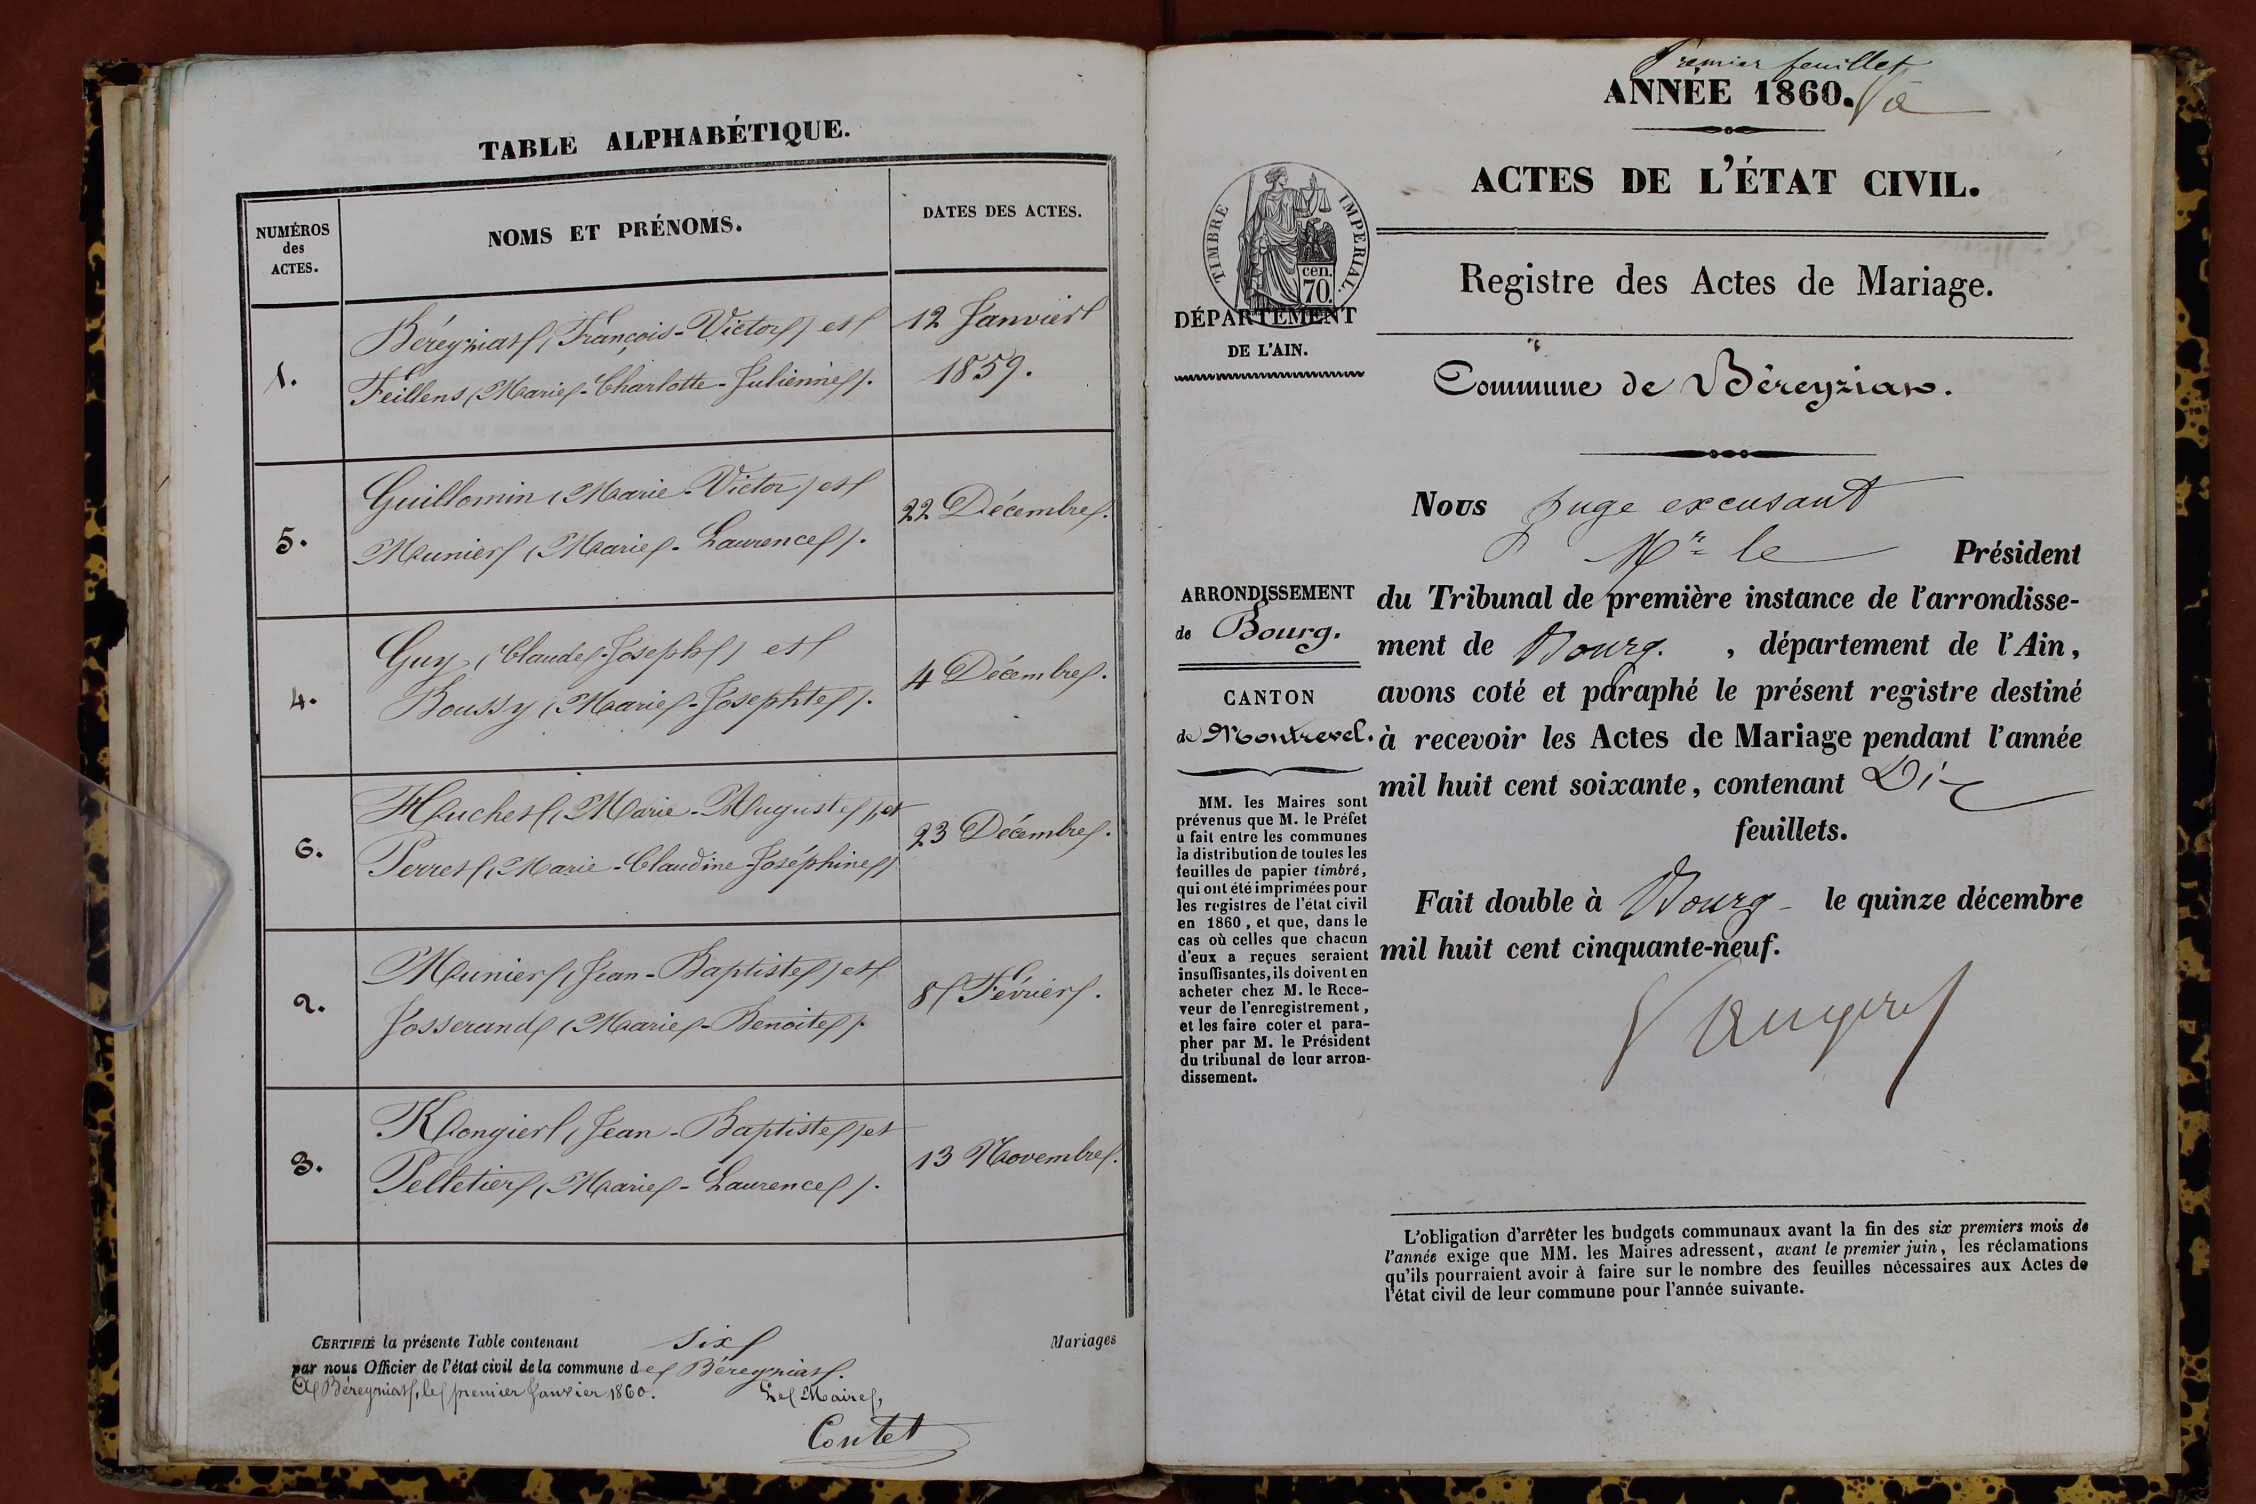 TABLE ALPHABÉTIQUE.
NUMÉROS
des
ACTES.
NOMS ET PRÉNOMS.
DATES DES ACTES.
1.
Béréyziat (François-Victor) et
Feillens (Marie-Charlotte-Julienne).
12 Janvier
1859.
5.
Guillomin (Marie-Victor) et
Munier (Marie-Laurence).
22 Décembre.
4.
Guy (Claude-Joseph) et
Boussy (Marie-Josephte).
4 Décembre.
6.
Huchet (Marie-Auguste) et
Perret (Marie-Claudine-Joséphine)
23 Décembre.
2.
Munier (Jean-Baptiste) et
Josserand (Marie-Benoite).
8 Février.
3.
Rongier (Jean-Baptiste) et
Pelletier (Marie-Laurence).
13 Novembre.
CERTIFIÉ la présente Table contenant six Mariages
par nous Officier de l'état civil de la commune de Béreyziat.
A Béreyziat, le premier Janvier 1860.
Le Maire,
Contet
Premier feuillet
ANNÉE 1860.
ACTES DE L'ÉTAT CIVIL.
TIMBRE IMPERIAL.
cen.
70.
DÉPARTEMENT
DE L'AIN.
Registre des Actes de Mariage.
Commune de Béreyziat.
ARRONDISSEMENT
de Bourg.
CANTON
de Montrevel.
MM. les Maires sont
prévenus que M. le Préfet
a fait entre les communes
la distribution de toutes les
feuilles de papier timbré,
qui ont été imprimées pour
les registres de l'état civil
en 1860, et que, dans le
cas où celles que chacun
d'eux a reçues seraient
insuffisantes, ils doivent en
acheter chez M. le Rece-
veur de l'enregistrement,
et les faire coter et para-
pher par M. le Président
du tribunal de leur arron-
dissement.
Nous Juge excusant
Mr le Président
du Tribunal de première instance de l'arrondisse-
ment de Bourg. , département de l'Ain,
avons coté et paraphé le présent registre destiné
à recevoir les Actes de Mariage pendant l'année
mil huit cent soixante, contenant Dix
feuillets.
Fait double à Bourg le quinze décembre
mil huit cent cinquante-neuf.
L'obligation d'arrêter les budgets communaux avant la fin des six premiers mois de
l'année exige que MM. les Maires adressent, avant le premier juin, les réclamations
qu'ils pourraient avoir à faire sur le nombre des feuilles nécessaires aux Actes de
l'état civil de leur commune pour l'année suivante.